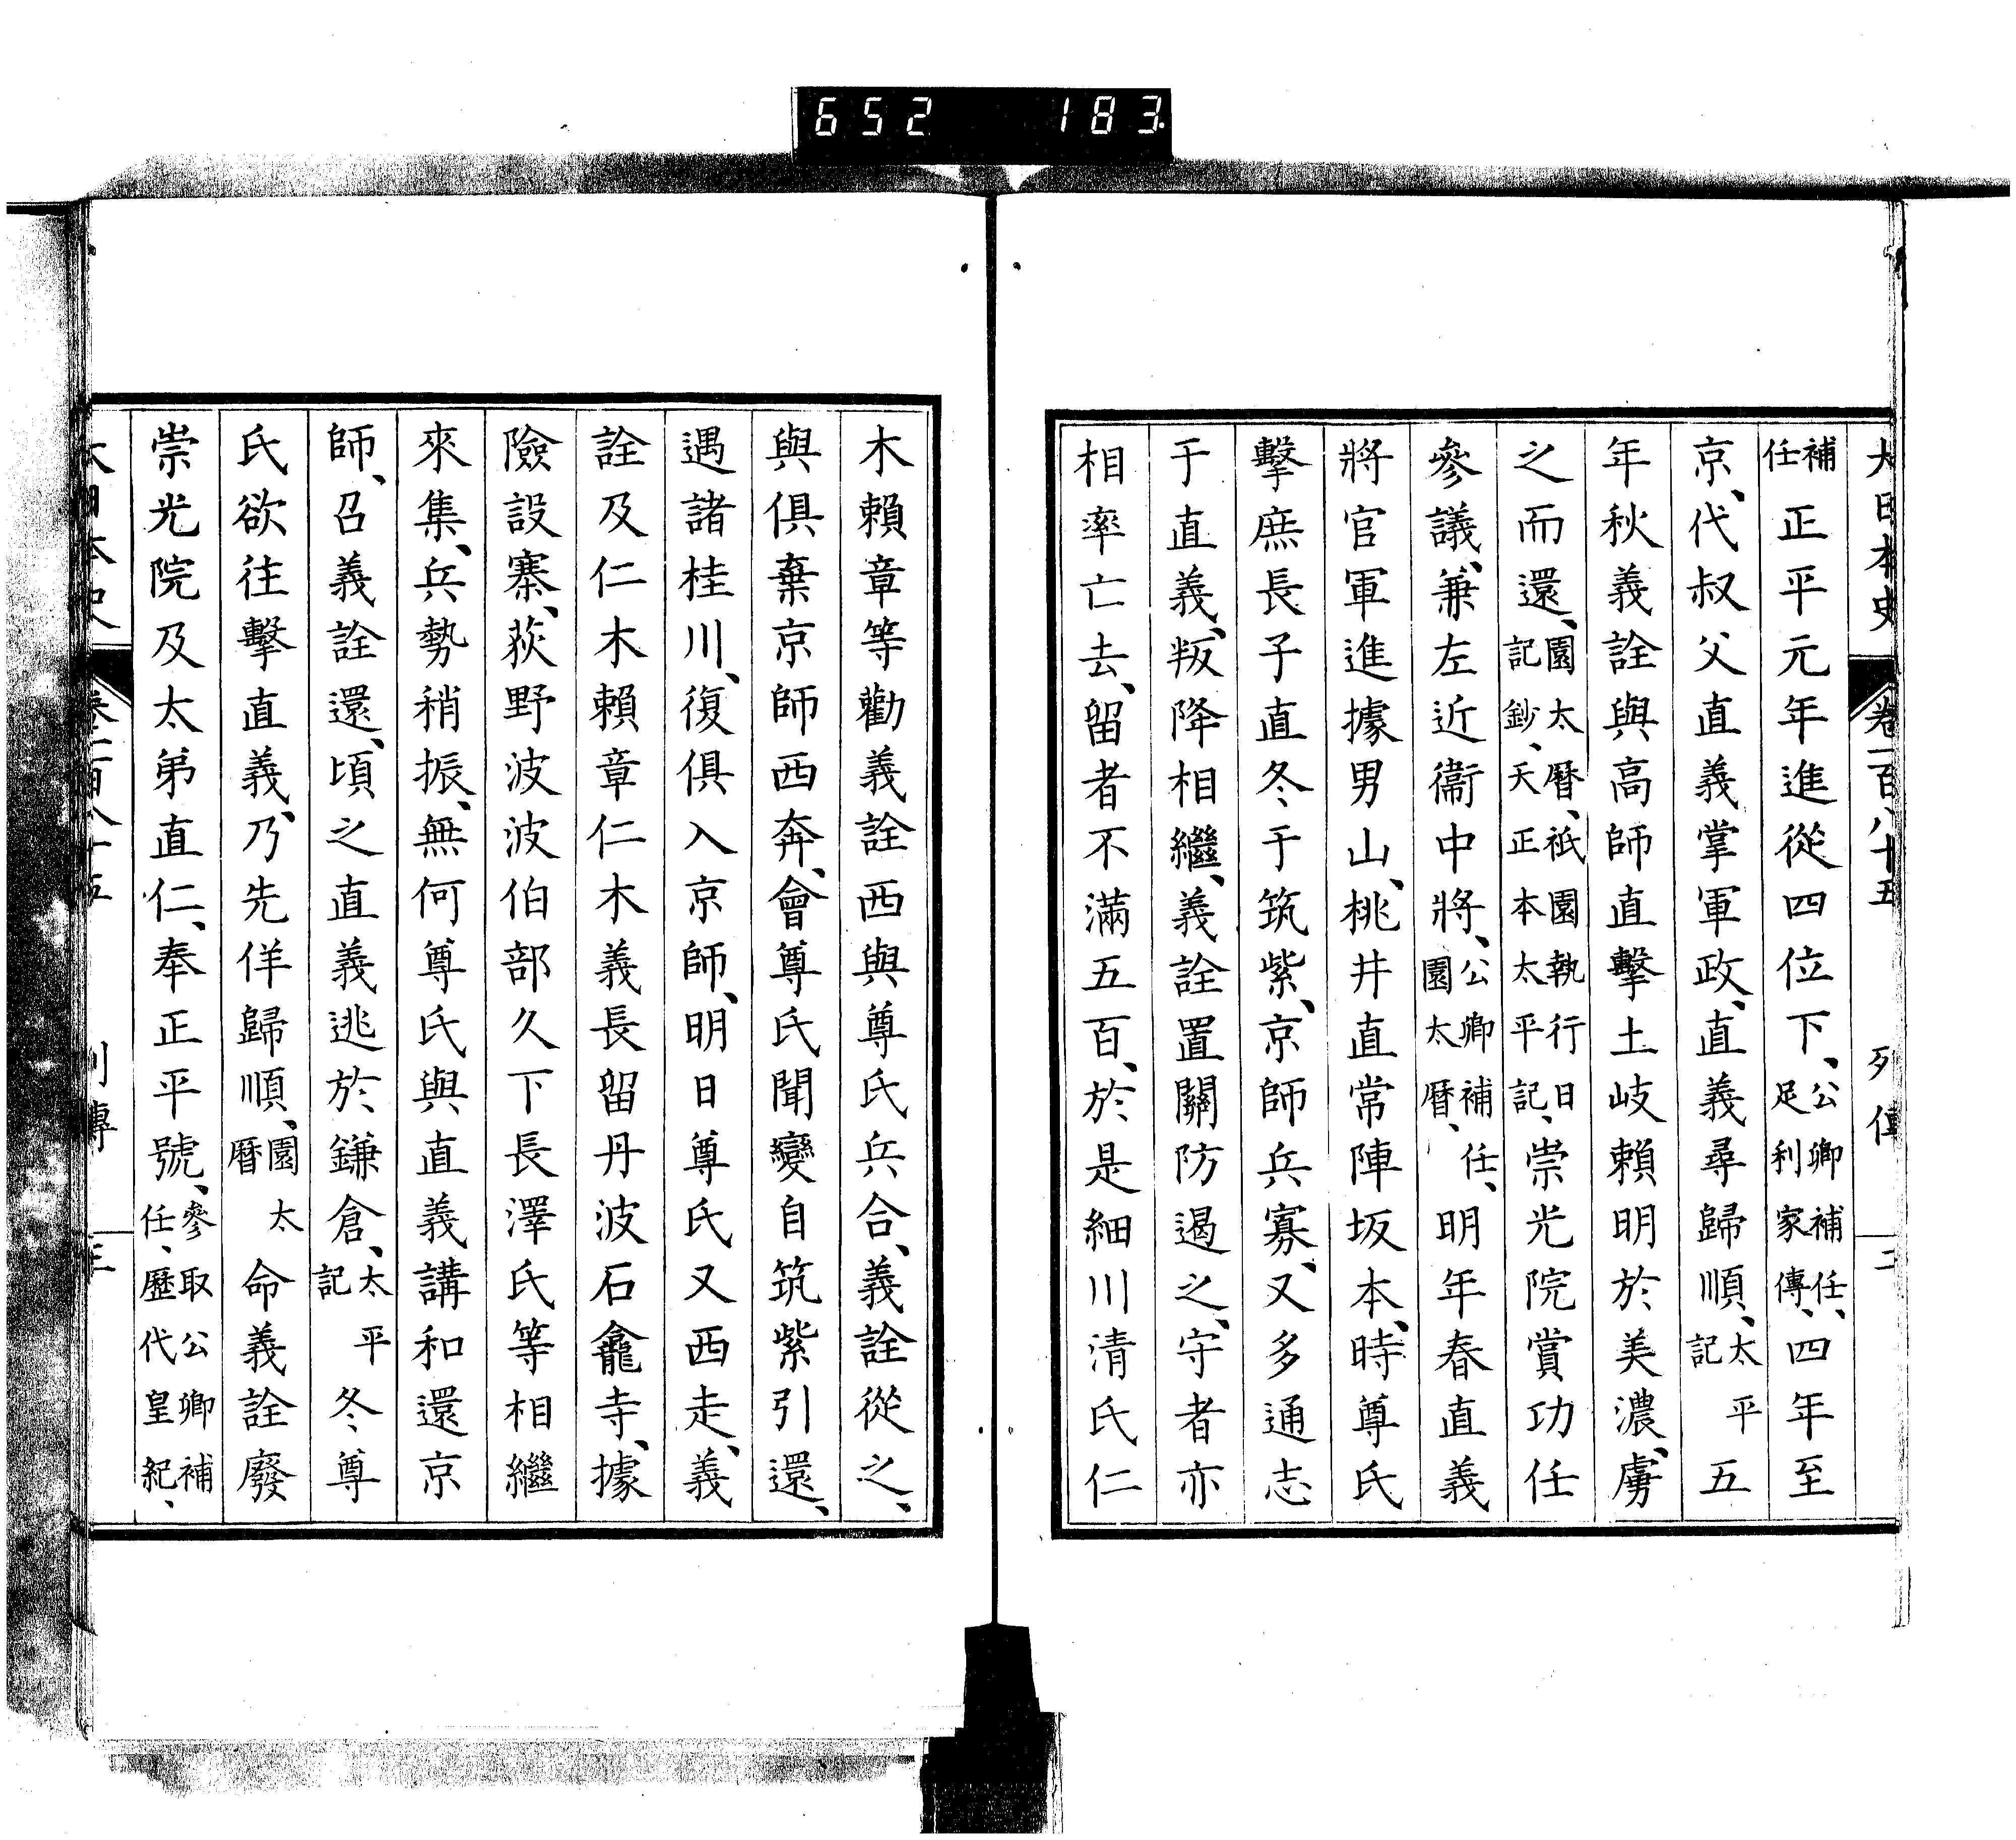 652 183
大日本史 卷一百八十五 列傳 二
補任正平元年進從四位下、公卿補任、足利家傳、四年至
京、代叔父直義掌軍政、直義尋歸順、太平記五
年秋義詮與高師直擊土岐賴明於美濃、虜
之而還、園太曆、祇園執行日記鈔、天正本太平記、崇光院賞功任
參議、兼左近衞中將、公卿補任、園太曆、明年春直義
將官軍進據男山、桃井直常陣坂本、時尊氏
擊庶長子直冬于筑紫、京師兵寡、又多通志
于直義、叛降相繼、義詮置關防遏之、守者亦
相率亡去、留者不滿五百、於是細川清氏仁
木賴章等勸義詮西與尊氏兵合、義詮從之、
與俱棄京師西奔、會尊氏聞變自筑紫引還、
遇諸桂川、復俱入京師、明日尊氏又西走、義
詮及仁木賴章仁木義長留丹波石龕寺、據
險設寨、荻野波波伯部久下長澤氏等相繼
來集、兵勢稍振、無何尊氏與直義講和還京
師、召義詮還、頃之直義逃於鎌倉、太平記冬尊
氏欲往擊直義、乃先佯歸順、園太曆命義詮廢
崇光院及太弟直仁、奉正平號、參取公卿補任、歷代皇紀、
大日本史 卷一百八十五 列傳 三